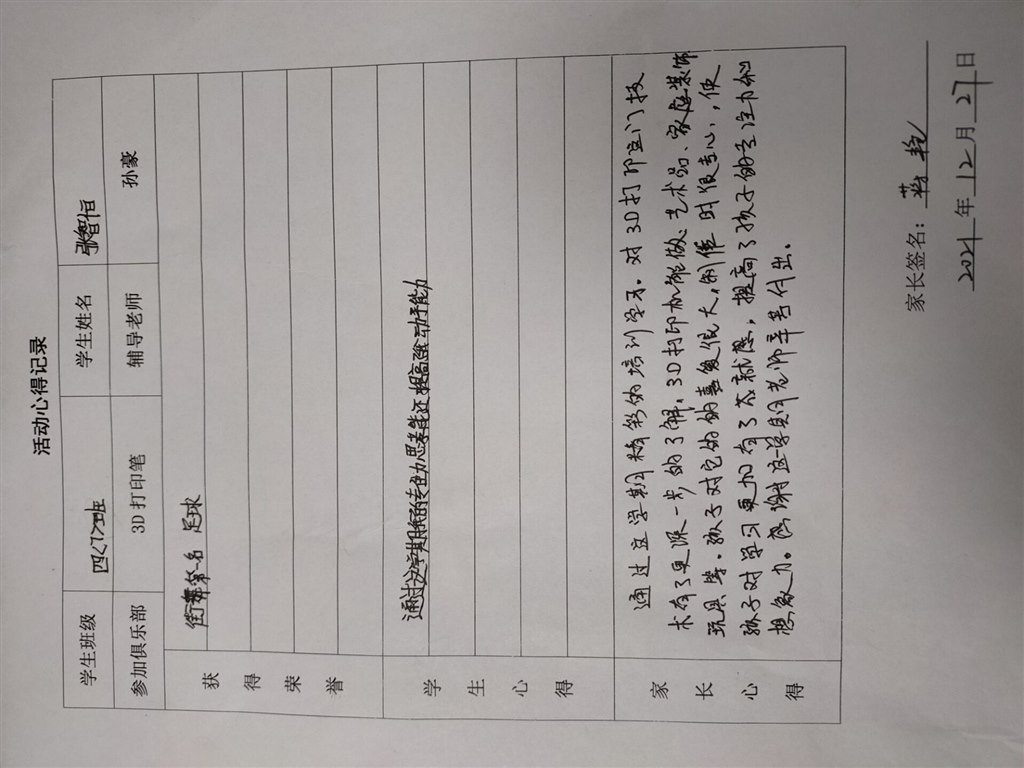 活动心得记录
学生班级 四<7>班 学生姓名 张智恒
参加俱乐部 3D打印笔 辅导老师 孙豪
获得荣誉
街舞第一名 足球
学生心得
通过这学期的专力思考能还提高强动手能力
家长心得
通过这学期精彩的培训学习。对3D打印这门技
术有了更深一步的了解，3D打印加能做艺术品、家庭装饰
玩具等。孩子对它的喜爱很大，制作时很专心，使
孩子对学习更加有了成就感，提高了孩子的专注力和
想象力。感谢这学期老师辛苦付出。
家长签名：
2021年12月27日